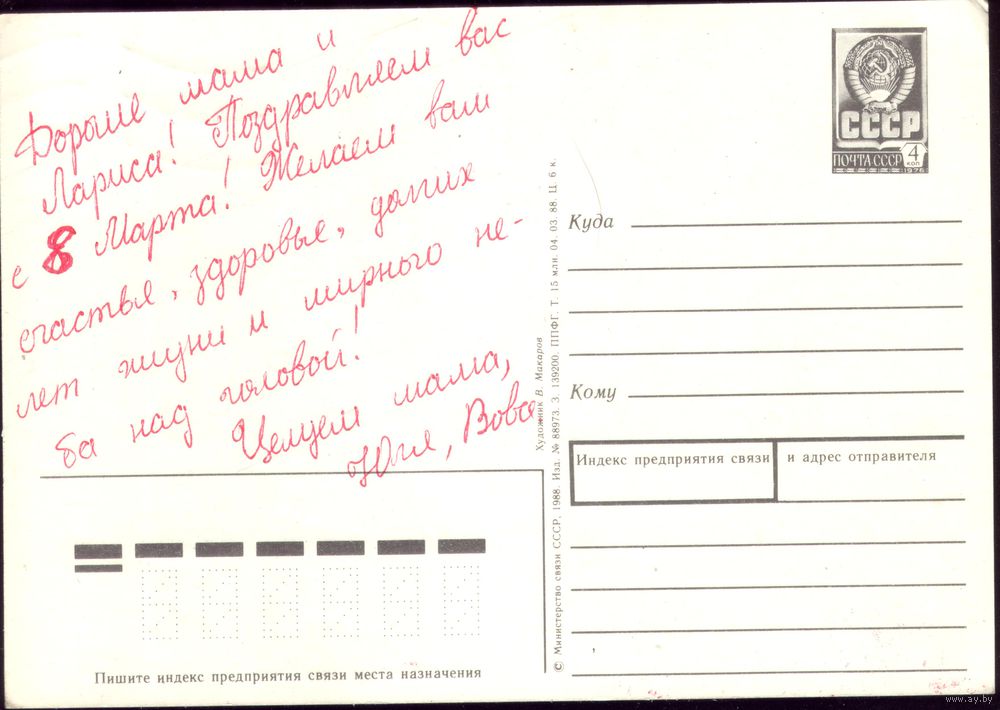 Дорогие мама и
Лариса! Поздравляем вас
с 8 Марта! Желаем вам
счастья, здоровья, долгих
лет жизни и мирного не-
ба над головой!
Целуем мама,
Юля, Вова
Пишите индекс предприятия связи места назначения
Художник В. Макаров
© Министерство связи СССР, 1988. Изд. № 88973. З. 139200. ППФГ. Т. 15 млн. 04. 03. 88. Ц. 6 к.
СССР
ПОЧТА СССР 4 КОП
1976
Куда
Кому
Индекс предприятия связи
и адрес отправителя
www.ay.by